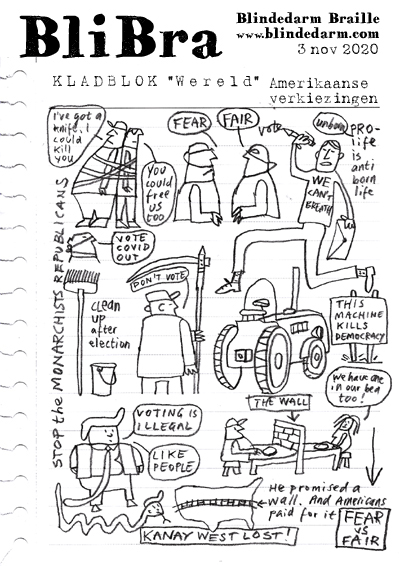 BliBra
Blindedarm Braille
www.blindedarm.com
3 nov 2020
KLADBLOK "Wereld"
Amerikaanse
verkiezingen
I've got a
knife. I
could
kill
you
You
could
free
us
too
FEAR
FAIR
vote
unborn
PRO-
life
is
anti
born
life
WE
CAN'T
BREATH
STOP the MONARCHISTS REPUBLICANS
VOTE
COVID
OUT
clean
up
after
election
DON'T VOTE
THIS
MACHINE
KILLS
DEMOCRACY
we have one
in our bed
too!
THE WALL
VOTING IS
ILLEGAL
LIKE
PEOPLE
He promised a
wall. And Americans
paid for it
FEAR
vs
FAIR
KANAY WEST LOST!